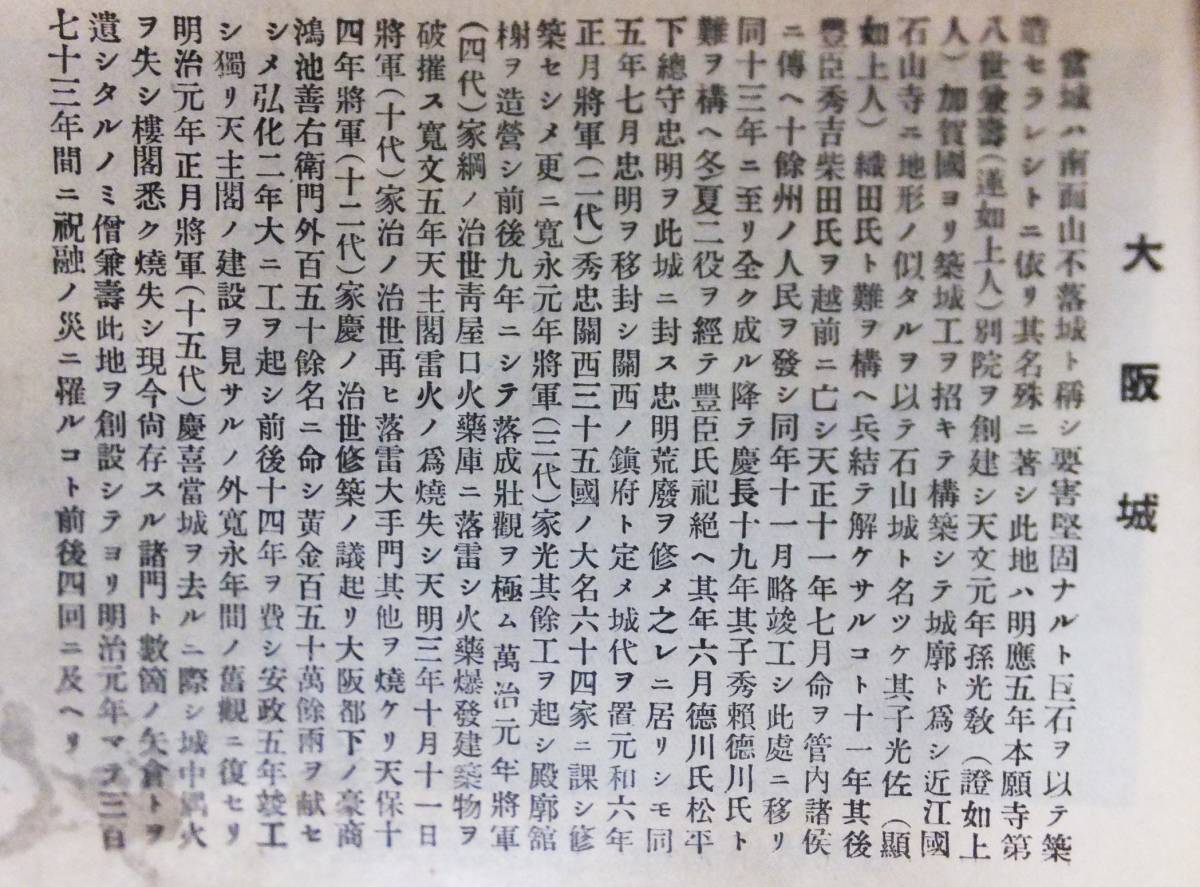 大阪城
當城ハ南面山不落城ト稱シ要害堅固ナルト巨石ヲ以テ築
造セラレシトニ依リ其名殊ニ著シ此地ハ明應五年本願寺第
八世兼壽(蓮如上人)別院ヲ創建シ天文元年孫光敎(證如上
人)加賀國ヨリ築城工ヲ招キテ構築シテ城廓ト爲シ近江國
石山寺ニ地形ノ似タルヲ以テ石山城ト名ツケ其子光佐(顯
如上人)織田氏ト難ヲ構ヘ兵結テ解ケサルコト十一年其後
豐臣秀吉柴田氏ヲ越前ニ亡シ天正十一年七月命ヲ管內諸侯
ニ傳ヘ十餘州ノ人民ヲ發シ同年十一月略竣工シ此處ニ移リ
同十三年ニ至リ全ク成ル降テ慶長十九年其子秀賴德川氏ト
難ヲ構ヘ冬夏二役ヲ經テ豐臣氏祀絕ヘ其年六月德川氏松平
下總守忠明ヲ此城ニ封ス忠明荒廢ヲ修メ之レニ居リシモ同
五年七月忠明ヲ移封シ關西ノ鎭府ト定メ城代ヲ置元和六年
正月將軍(二代)秀忠關西三十五國ノ大名六十四家ニ課シ修
築セシメ更ニ寬永元年將軍(三代)家光其餘工ヲ起シ殿廓舘
榭ヲ造營シ前後九年ニシテ落成壯觀ヲ極ム萬治元年將軍
(四代)家綱ノ治世靑屋口火藥庫ニ落雷シ火藥爆發建築物ヲ
破摧ス寬文五年天主閣雷火ノ爲燒失シ天明三年十月十一日
將軍(十代)家治ノ治世再ヒ落雷大手門其他ヲ燒ケリ天保十
四年將軍(十二代)家慶ノ治世修築ノ議起リ大阪都下ノ豪商
鴻池善右衞門外百五十餘名ニ命シ黃金百五十萬餘兩ヲ献セ
シメ弘化二年大ニ工ヲ起シ前後十四年ヲ費シ安政五年竣工
シ獨リ天主閣ノ建設ヲ見サルノ外寬永年間ノ舊觀ニ復セリ
明治元年正月將軍(十五代)慶喜當城ヲ去ルニ際シ城中火
ヲ失シ樓閣悉ク燒失シ現今尙存スル諸門ト數箇ノ矢倉トヲ
遺シタルノミ僧兼壽此地ヲ創設シテヨリ明治元年マテ三百
七十三年間ニ祝融ノ災ニ罹ルコト前後四回ニ及ヘリ